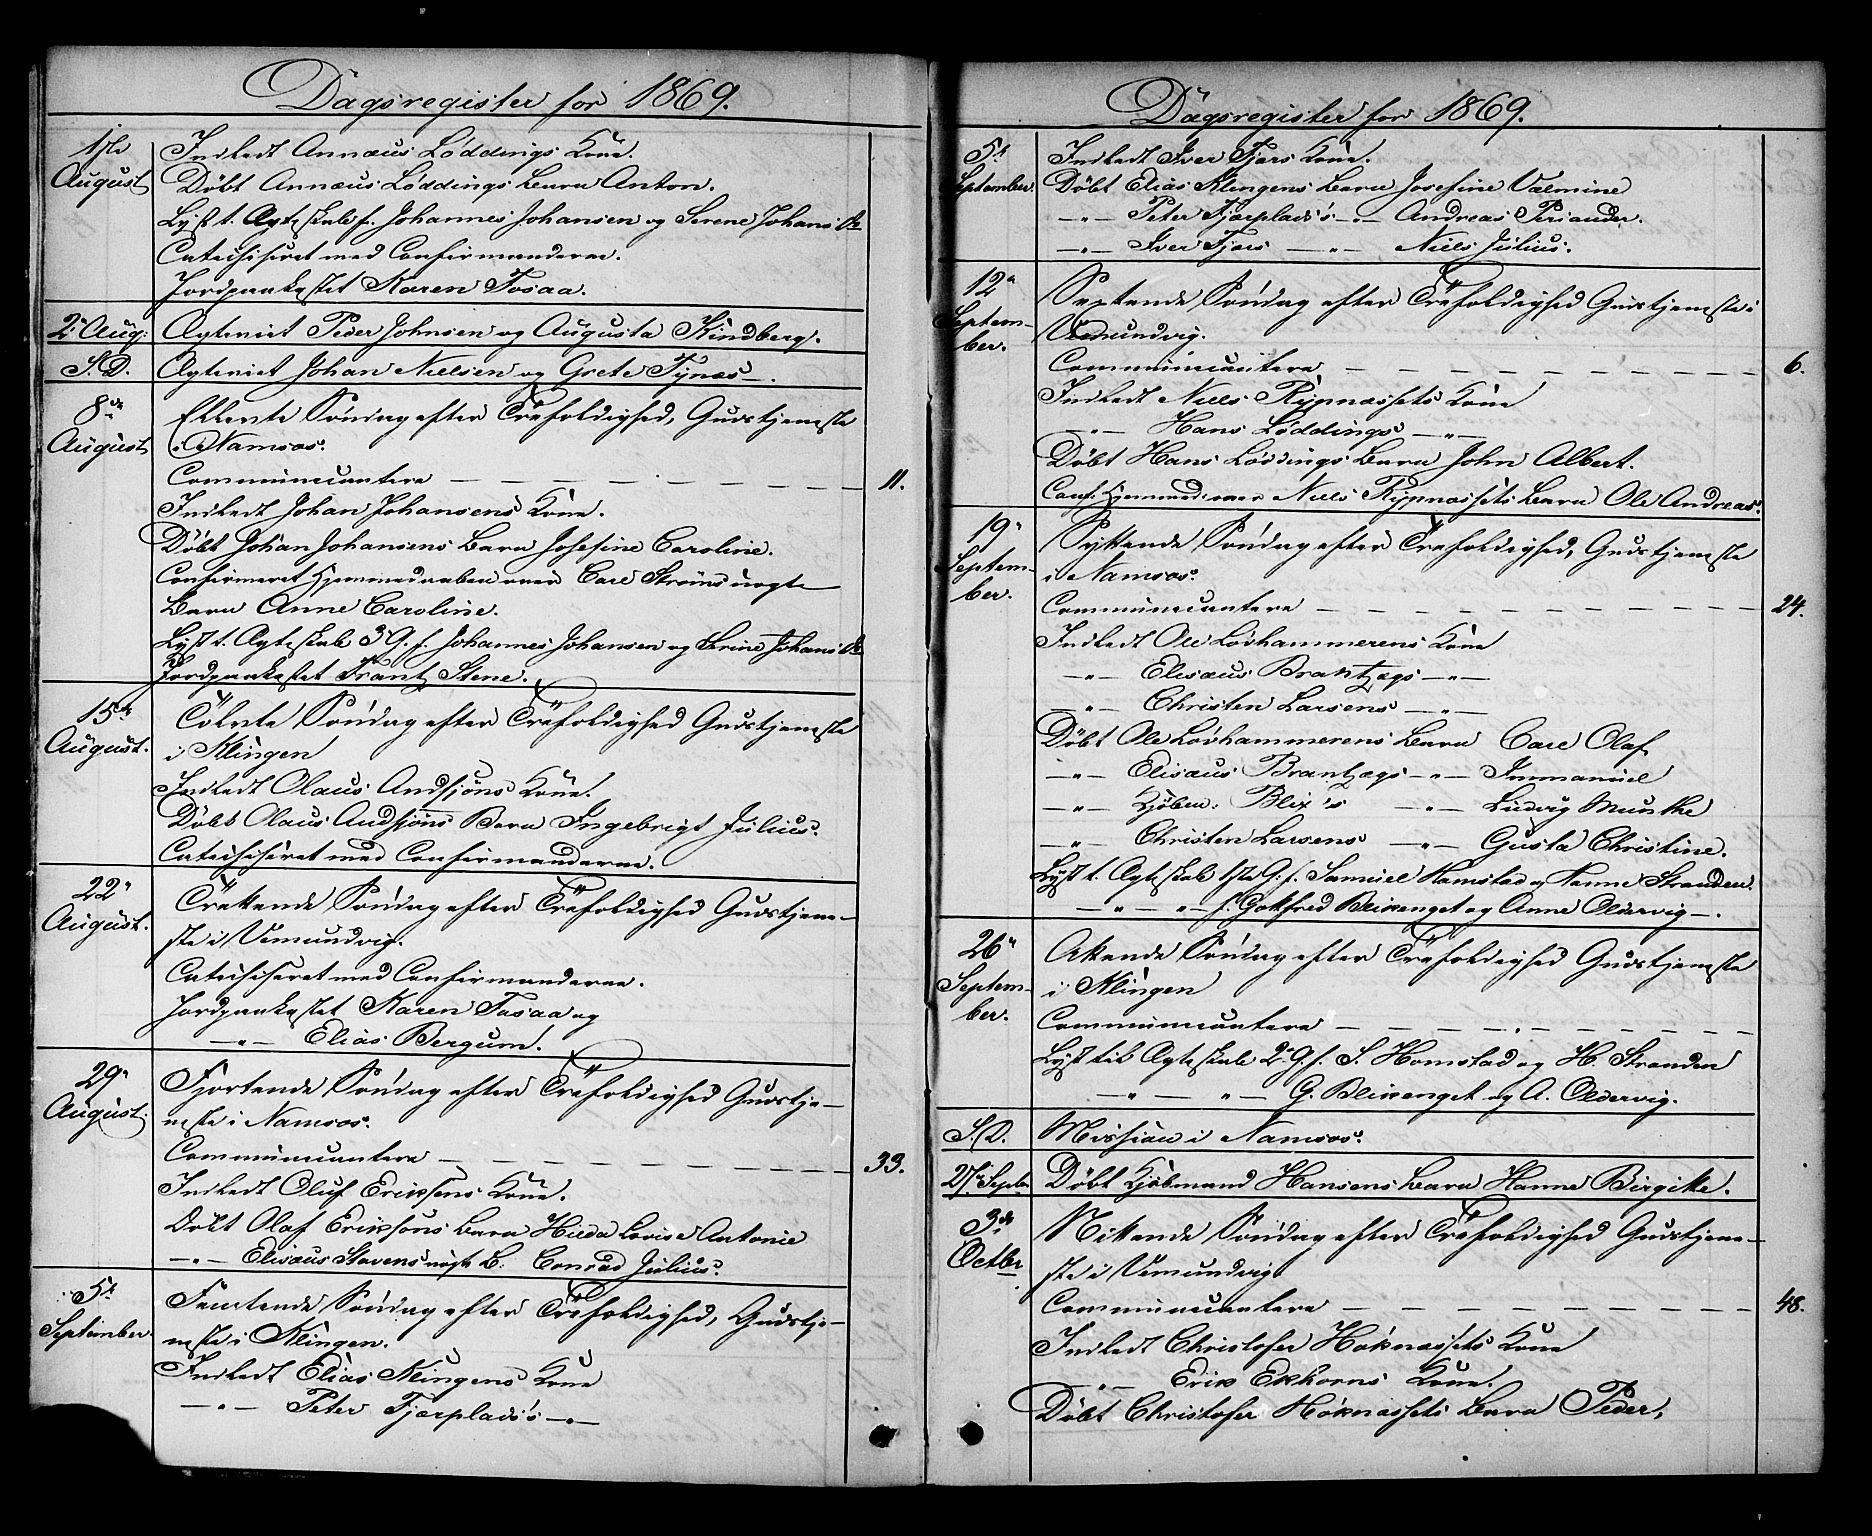 Dagsregister for 1869.
1ste August
Indledt Annæus Løddings Kone.
Døbt Annæus Løddings Barn Anton.
Lyst t. Ægteskab f. Johannes Johansen og Serene Johansd.
Catechiseret med Confirmanderne.
Jordpaakastet Karen Tosaa.
2. Aug:
Ægteviet Peder Johnsen og Augusta Kindberg.
S. D.
Ægteviet Johan Nielsen og Grete Tynes.
8de August
Ellevte Søndag efter Trefoldighed, Gudstjeneste
i Namsos.
Communicantere — — — 11.
Indledt Johan Johansens Kone.
Døbt Johan Johansens Barn Josefine Caroline.
Confirmeret Hjemmedaaben over Carl Strøms uægte
Barn Anne Caroline.
Lyst t. Ægteskab 3 G. f. Johannes Johansen og Serine Johansd.
Jordpaakastet Frantz Stene.
15de August.
Tolvte Søndag efter Trefoldighed Gudstjeneste
i Klingen
Indledt Olaus Andsjøns Kone.
Døbt Olaus Andsjøns Barn Ingebrigt Julius.
Catechiseret med Confirmanderne.
22" August.
Trettende Søndag efter Trefoldighed Gudstjene-
ste i Vemundvig.
Catechiseret med Confirmanderne.
Jordpaakastet Karen Tosaa og
—"— Elias Bergum.
29" August.
Fjortende Søndag efter Trefoldighed Gudstje-
neste i Namsos.
Communicantere — — — 33.
Indledt Oluf Eriksens Kone.
Døbt Olaf Eriksøns Barn Hilda Lovise Antonie
—"— Elisæus Stavens uægte B. Conrad Julius.
5te September
Femtende Søndag efter Trefoldighed, Gudstje-
neste i Klingen.
Indledt Elias Klingens Kone
—"— Peter Fjærplads's —"—
Dagsregister for 1869.
5te September.
Indledt Iver Fjærs Kone.
Døbt Elias Klingens Barn Josefine Valmine
—"— Peter Fjærplads's —"— Andreas Periander.
—"— Iver Fjærs —"— Niels Julius.
12" September.
Sextende Søndag efter Trefoldighed Gudstjeneste i
Vemundvig.
Communicantere — — — 6.
Indledt Niels Rypnæssets Kone
—"— Hans Løddings —"—
Døbt Hans Løddings Barn John Albert.
Conf. Hjemmed. over Niels Rypnæssets Barn Ole Andreas.
19" September.
Syttende Søndag efter Trefoldighed, Gudstjeneste
i Namsos.
Communicantere — — — 24.
Indledt Ole Lovhammerens Kone
—"— Elisæus Brantzægs —"—
—"— Christen Larsens —"—
Døbt Ole Lovhammerens Barn Carl Olaf
—"— Elisæus Brantzægs —"— Immanuel
—"— Kjøbm. Blix's —"— Ludvig Munthe
—"— Christen Larsens —"— Gusta Christine.
Lyst t. Ægteskab 1ste G. f. Samuel Homstad og Hanne Stranden.
—"— "— f. Gotfred Bleikenget og Anne Oldervig —.
26" September.
Attende Søndag efter Trefoldighed Gudstjeneste
i Klingen
Communicantere — — —
Lyst til Ægteskab 2. G. f. S. Homstad og H. Stranden
—"— "— G. Bleikenget og A. Oldervig.
S. D.
Mission i Namsos.
27" Septbr.
Døbt Kjøbmand Hansens Barn Hanne Birgitte.
3de Octbr
Nittende Søndag efter Trefoldighed Gudstjene-
ste i Vemundvig
Communicantere — — — 48.
Indledt Christofer Høknæssets Kone
—"— Erik Ekhorns Kone.
Døbt Christofer Høknæssets Barn Peder,